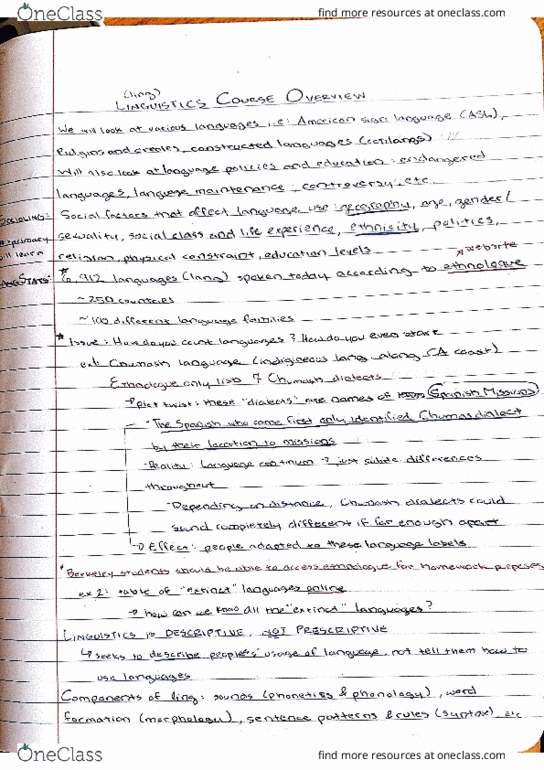 OneClass
find more resources at oneclass.com
(ling)
LINGUISTICS COURSE OVERVIEW
We will look at various languages i.e: American sign language (ASL),
Pidgins and creoles, constructed languages (conlangs)
Will also look at language policies and education: endangered
languages, language maintenance, controversy, etc.
Social factors that affect language use: geography, age, gender/
sexuality, social class and life experience, ethnicity, politics,
will learn
religion, physical constraint, education levels
website
6,912 languages (lang) spoken today according to ethnologue
~250 countries
~100 different language families
* Issue: How do you count languages? How do you even start
ex1: Chumash language (indigenous lang along CA coast)
Ethnologue only lists 7 Chumash dialects
Plot twist: these "dialects" are names of Spanish Missions
- The Spanish who came first only identified Chumash dialect
by their location to missions
- Reality: Language continum → just subtle differences
throughout
- Depending on distance, Chumash dialects could
sound completely different if far enough apart
→ Effect: people adapted to these language labels
* Berkeley students should be able to access ethnologue for homework purposes
ex 2: table of "extinct" languages online
→ how can we know all the "extinct" languages?
LINGUISTICS IS DESCRIPTIVE, NOT PRESCRIPTIVE
↳ seeks to describe peoples' usage of language, not tell them how to
use languages
Components of ling: sounds (phonetics & phonology), word
formation (morphology), sentence patterns & rules (syntax), etc
OneClass
find more resources at oneclass.com